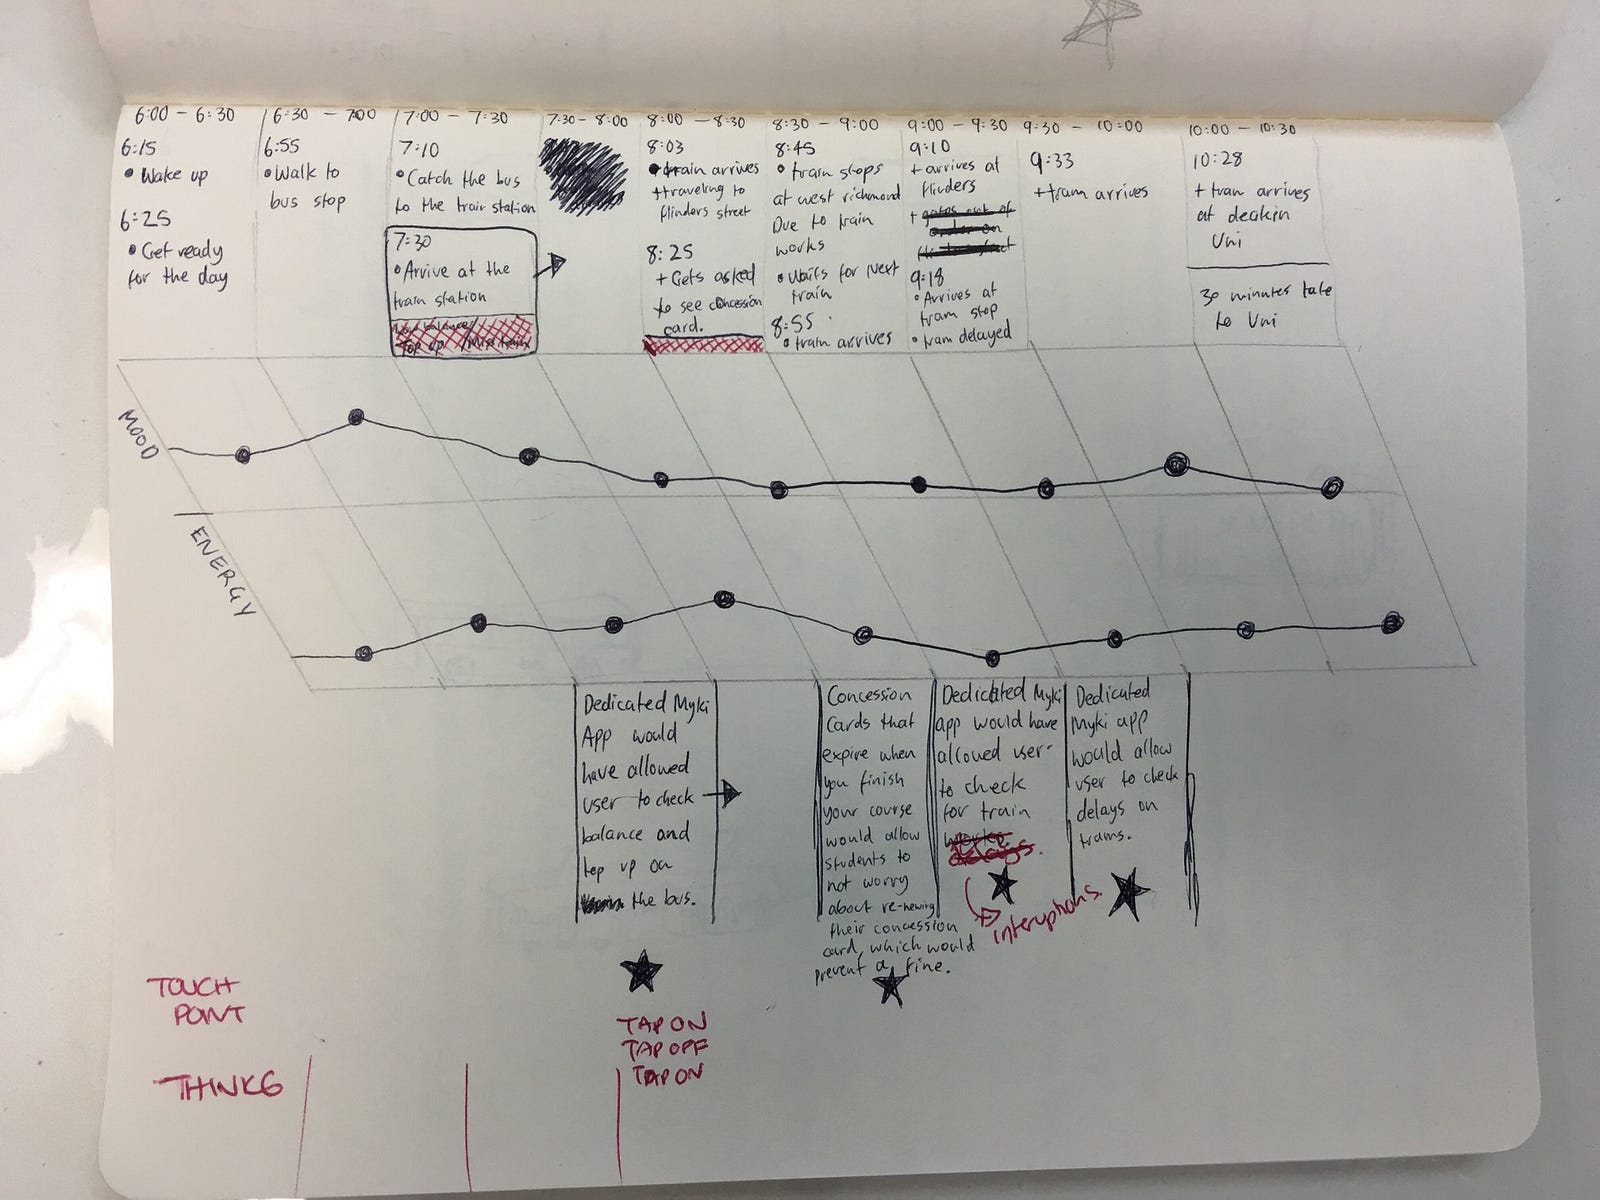 6:00 - 6:30
6:15
• Wake up
6:25
• Get ready
for the day
6:30 - 7:00
6:55
• Walk to
bus stop
7:00 - 7:30
7:10
• Catch the bus
to the train station
7:30
• Arrive at the
train station
Top up / Miss train
7:30 - 8:00
8:00 - 8:30
8:03
• train arrives
+traveling to
flinders street
8:25
+ Gets asked
to see concession
card.
8:30 - 9:00
8:45
• train stops
at west richmond
Due to train
works
• Waits for Next
train
8:55
• train arrives
9:00 - 9:30
9:10
+ arrives at
flinders
+ gates out of
order on
9:18
• Arrives at
tram stop
• tram delayed
9:30 - 10:00
9:33
+ tram arrives
10:00 - 10:30
10:28
+ tram arrives
at deakin
Uni
30 minutes late
to Uni
MOOD
ENERGY
Dedicated Myki
App would
have allowed
user to check
balance and
top up on
the bus.
Concession
Cards that
expire when
you finish
your course
would allow
students to
not worry
about re-newing
their concession
card, which would
prevent a fine.
Dedicated Myki
app would have
allowed user
to check
for train
works
delays.
Interuptions
Dedicated
Myki app
would allow
user to check
delays on
trams.
TOUCH
POINT
TAP ON
TAP OFF
TAP ON
THINKG